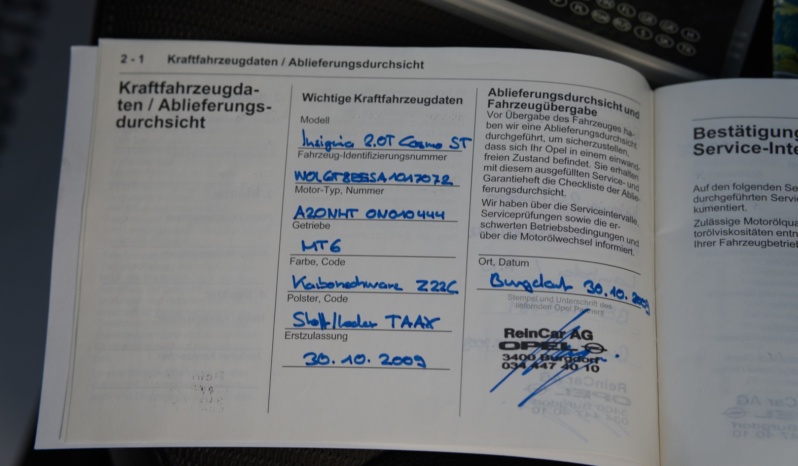 2 - 1 Kraftfahrzeugdaten / Ablieferungsdurchsicht
Kraftfahrzeugda-
ten / Ablieferungs-
durchsicht
Wichtige Kraftfahrzeugdaten
Modell
Insignia 2.0T Cosmo ST
Fahrzeug-Identifizierungsnummer
W0LGT8ESSA1017072
Motor-Typ, Nummer
A20NHT 0N010444
Getriebe
MT6
Farbe, Code
Karbonschwarz Z22C
Polster, Code
Stoff/Leder TAAX
Erstzulassung
30.10.2009
Ablieferungsdurchsicht und
Fahrzeugübergabe
Vor Übergabe des Fahrzeuges ha-
ben wir eine Ablieferungsdurchsicht
durchgeführt, um sicherzustellen,
dass sich Ihr Opel in einem einwand-
freien Zustand befindet. Sie erhalten
mit diesem ausgefüllten Service- und
Garantieheft die Checkliste der Ablie-
ferungsdurchsicht.
Wir haben über die Serviceintervalle,
Serviceprüfungen sowie die er-
schwerten Betriebsbedingungen und
über die Motorölwechsel informiert.
Ort, Datum
Burgdorf 30.10.2009
Stempel und Unterschrift des
ReinCar AG
OPEL
3400 Burgdorf
034 447 40 10
Bestätigung
Service-Inte
Auf den folgenden Se
durchgeführten Servic
kumentiert.
Zulässige Motorölqua
torölviskositäten entn
Ihrer Fahrzeugbetrieb